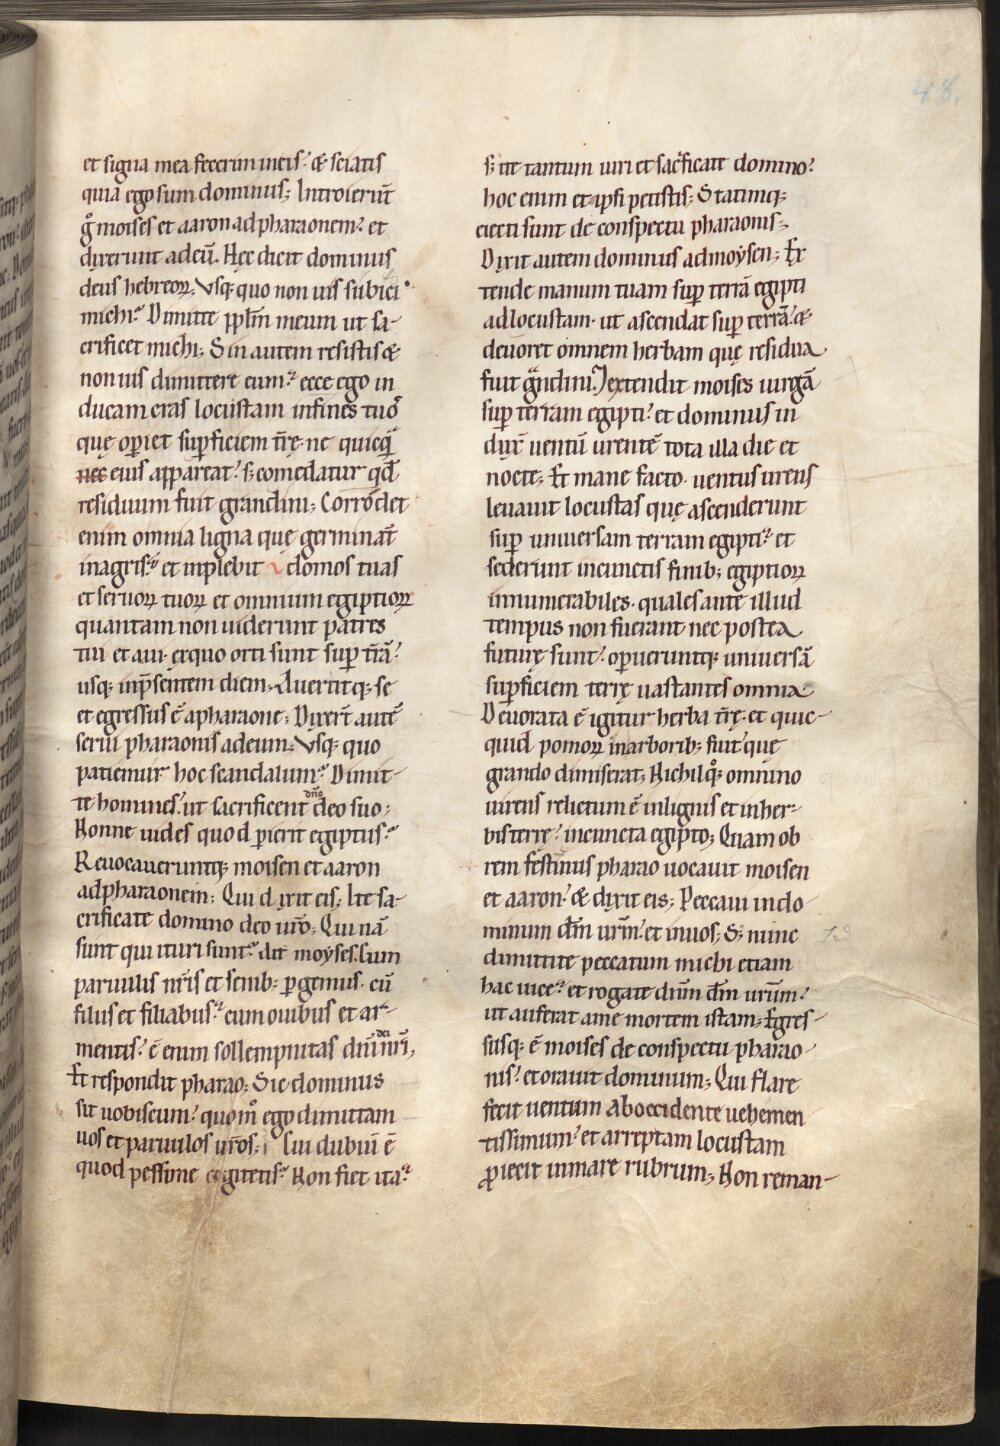 48.
et signa mea fecerim in eis? & sciatis
quia ego sum dominus; Introierūt
g̊ moises et aaron ad pharaonem? et
dixerunt ad eū. Hęc dicit dominus
deus hebreoꝝ; Vsq; quo non uis subici
michi? Dimitte pp̄lm meum ut sa-
crificet michi; Sin autem resistis &
non uis dimittere eum? ecce ego in
ducam cras locustam in fines tuos
quę operiet suꝑficiem tr̄ę· ne quicq̄
nec eius appareat? s; comedatur qd̄
residuum fuit grandini; Corrodet
enim omnia ligna quę germinant̄
in agris? et inplebit domos tuas
et seruoꝝ tuoꝝ et omnium egiptioꝝ
quantam non uiderunt patres
tui et aui· exquo orti sunt suꝑ tr̄ā?
usq; inp̄sentem diem; Auertitq; se
et egressus ē apharaone; Dixer̄t autē
serui pharaonis ad eum; Vsq; quo
patiemur hoc scandalum? Dimit-
te homines? ut sacrificent dn̄o deo suo;
Nonne uides quod ꝑierit egiptus?
Reuocaueruntq; moisen et aaron
ad pharaonem; Qui dixit eis; Ite sa-
crificate domino deo ur̄o; Qui nā
sunt qui ituri sunt? ait moyses. Cum
paruulis nr̄is et senib; ꝑgemus· cū
filiis et filiabus? cum ouibus et ar-
mentis? ē enim sollempnitas dn̄i dei nr̄i,
Et respondit pharao; Sic dominus
sit uobiscum? quom̊ ego dimittam
uos et paruulos ur̄os; Cui dubiū ē
quod pessime cogitetis? Non fiet ita?
s; ite tantum uiri et sacrificate domino?
hoc enim et ipsi petistis; Statimq;
eiecti sunt de conspectu pharaonis;
Dixit autem dominus ad moysen; Ex
tende manum tuam suꝑ terrā egipti
ad locustam· ut ascendat suꝑ terrā? &
deuoret omnem herbam quę residua
fuit grandini? Et extendit moises uirgā
suꝑ terram egipti? et dominus in
dux̄ uentū urentē tota illa die et
nocte; Et mane facto· uentus urens
leuauit locustas quę ascenderunt
suꝑ uniuersam terram egipti? et
sederunt in cunctis finib; egiptioꝝ
innumerabiles· quales ante illud
tempus non fuerant nec postea
futurę sunt? operueruntq; uniuersā
suꝑficiem terrę uastantes omnia
Deuorata ē igitur herba tr̄ę· et quic-
quid pomoꝝ in arborib; fuit quę
grando dimiserat; Nichilq; omnino
uirens relictum ē in lignis et in her-
bis terrę? in cuncta egipto; Quam ob
rem festinus pharao uocauit moisen
et aaron? & dixit eis; Peccaui in do
minum dm̄ urm̄? et in uos; S; nunc
dimittite peccatum michi etiam
hac uice? et rogate dnm̄ dm̄ urūm?
ut auferat ame mortem istam; Egres-
susq; ē moises de conspectu pharao-
nis? et orauit dominum; Qui flare
fecit uentum ab occidente uehemen
tissimum? et arreptam locustam
ꝓiecit in mare rubrum; Non reman-